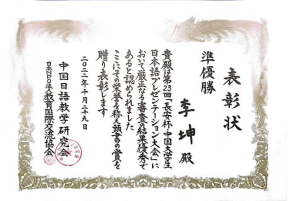 表彰状
準優勝
李坤 殿
貴殿は第23回「長安杯」中国大学生
日本語プレゼンテーション大会」に
おいて厳正なる審査の結果優秀で
あると認められました
ここにその栄誉を称え頭書の賞を
贈り表彰します
二〇二二年十月二十九日
中国日語教学研究会
教育国際交流協会